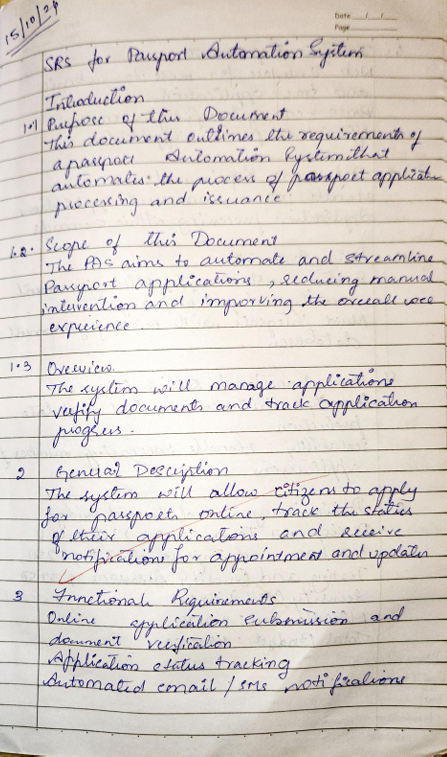 15/10/24
Date / /
Page
SRS for Passport Automation System
Introduction
1.1 Purpose of this Document
This document outlines the requirements of
a passport Automation System that
automates the process of passport application
processing and issuance.
1.2. Scope of this Document
The PAS aims to automate and streamline
Passport applications, reducing manual
intervention and imporving the overall user
experience.
1.3 Overview.
The system will manage applications
verify documents and track application
progress.
2 General Description
The system will allow citizens to apply
for passports online, track the status
of their applications and receive
notifications for appointment and updates
3 Functional Requirements
Online application submission and
document verification
Application status tracking
Automated email / SMS notifications